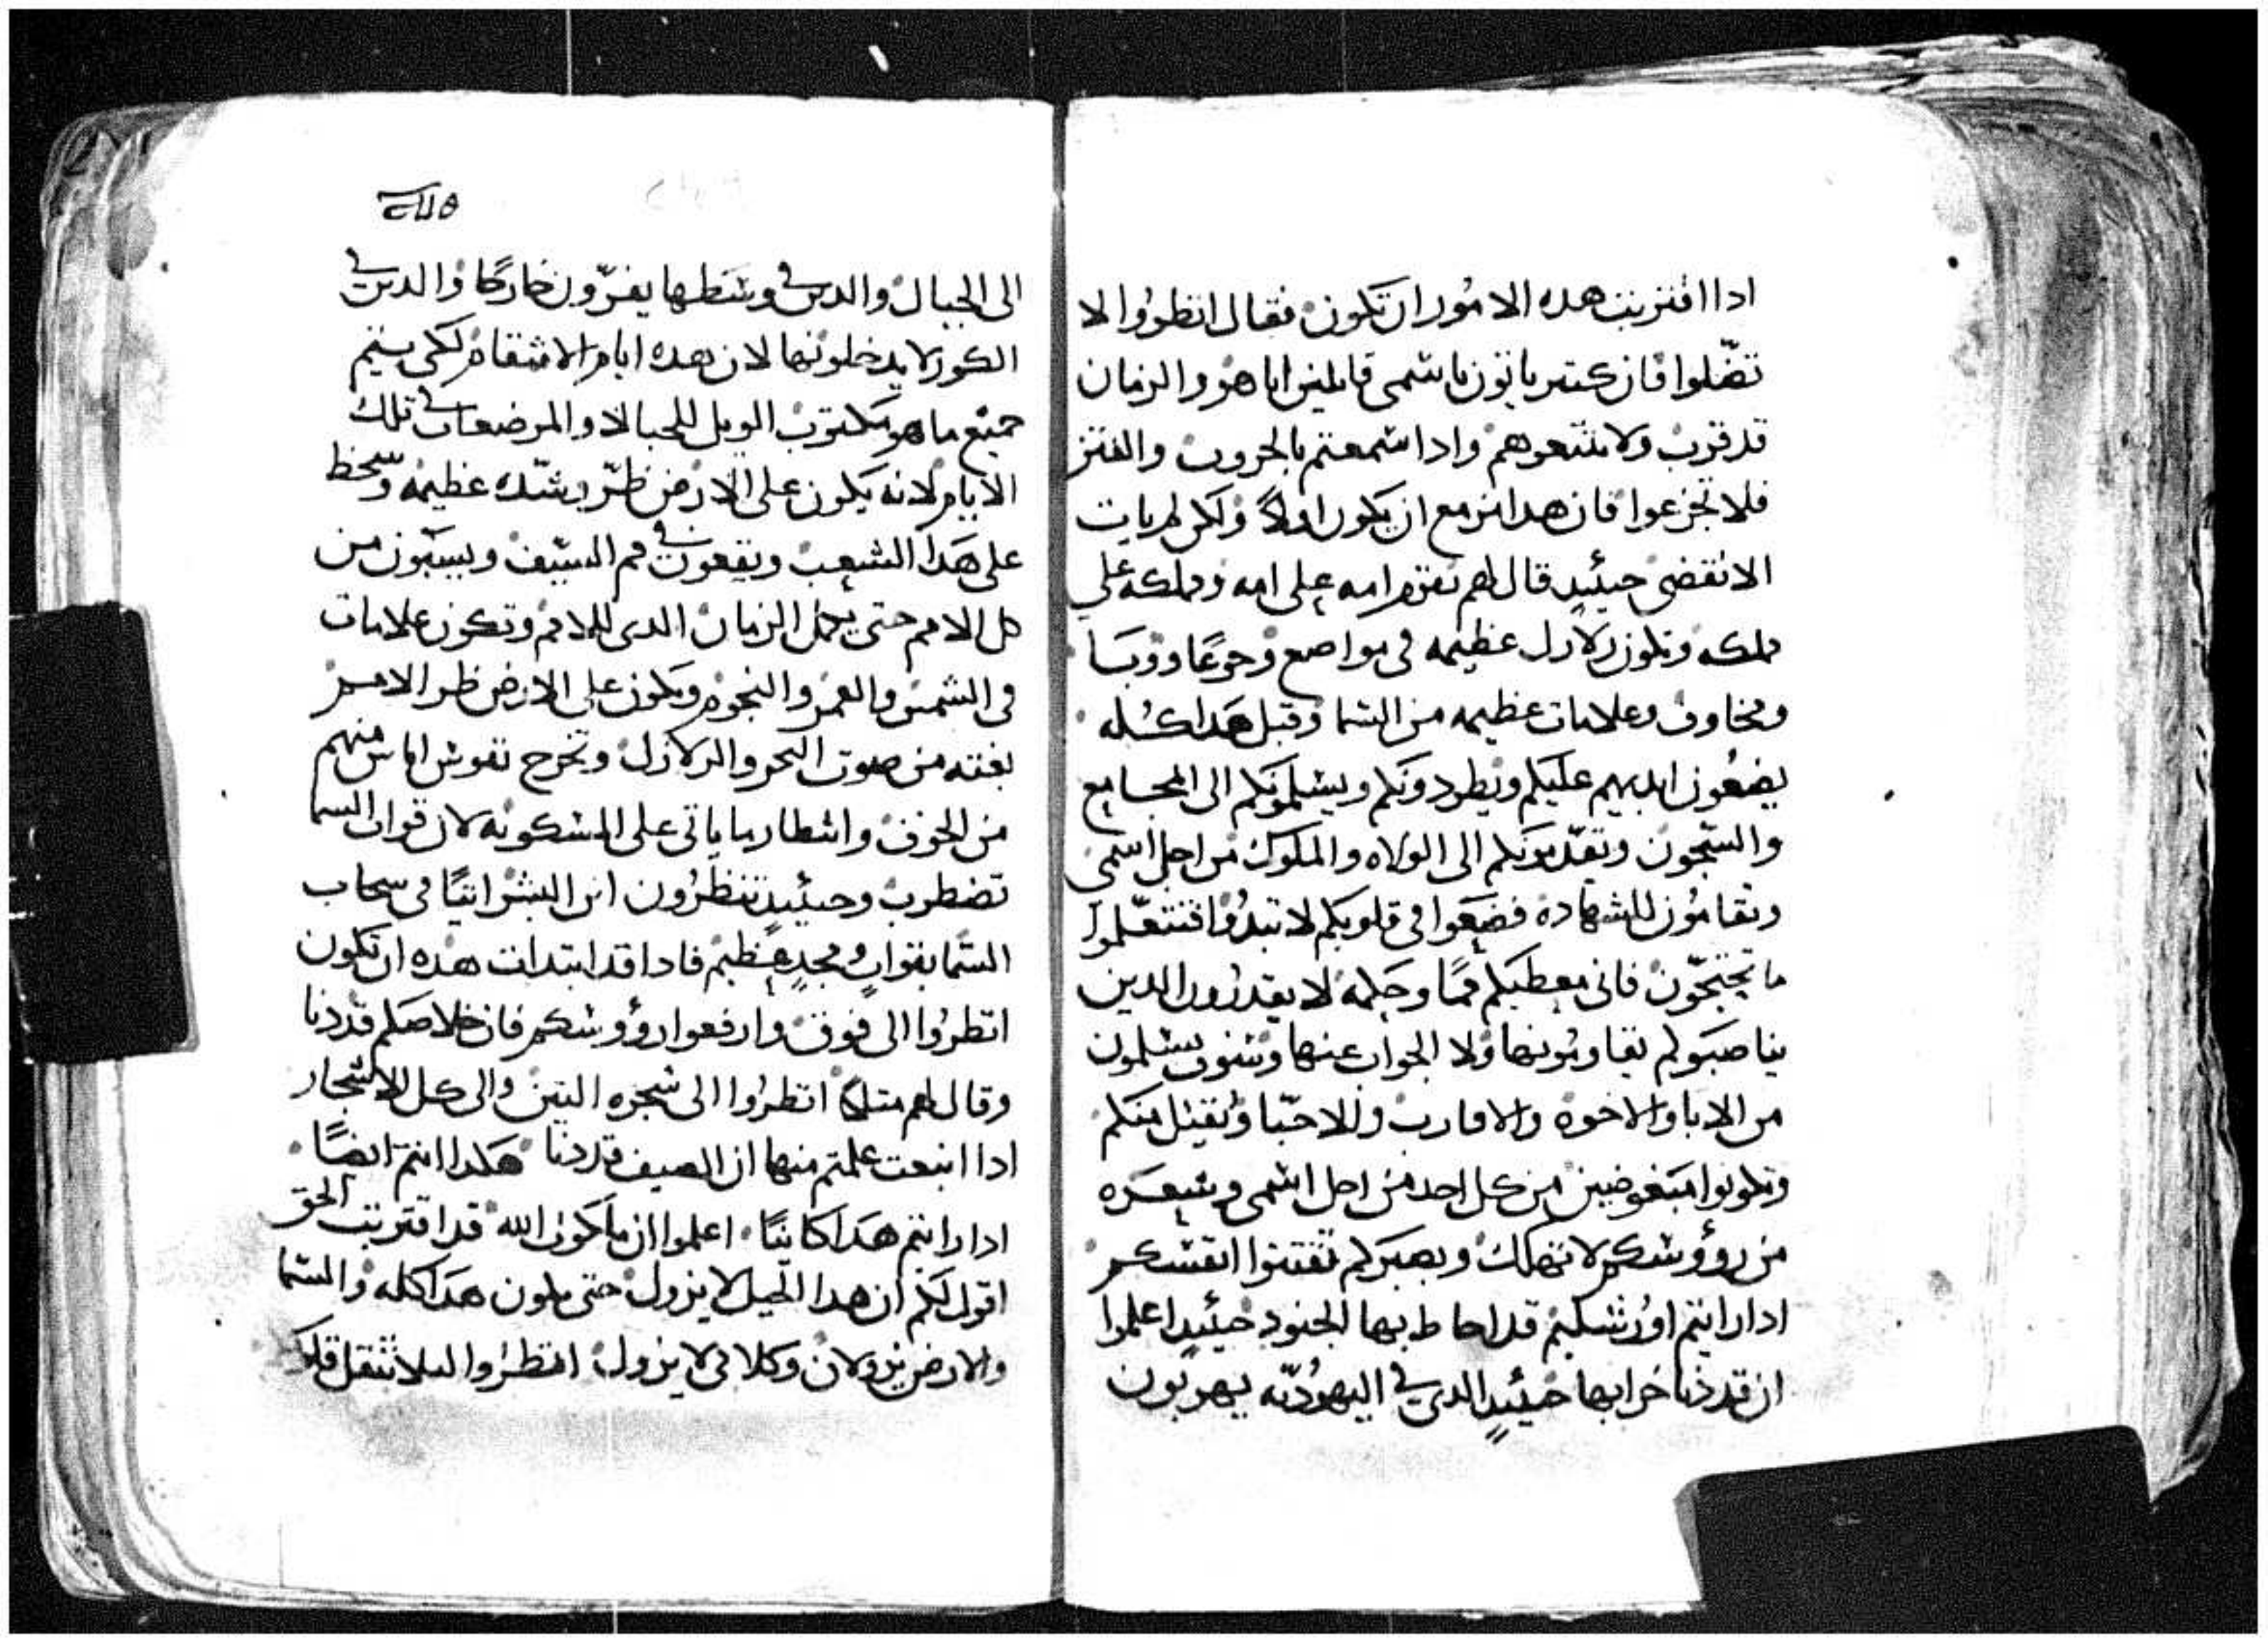 ادا اقتربت هده الامور ان تكون فقال انظروا لا
تضلوا فان كتير ياتون باسمى قايلين انا هو والزمان
قد قرب ولا تتبعوهم وادا سمعتم بالحروب والفتن
فلا تجزعوا فان هدا مزمع ان يكون اولا ولكن لم يات
الانقضى حينيدٍ قال لهم تقوم امه على امه ومملكه على
مملكه وتكون زلازل عظيمه فى مواضع وجوعًا ووبا
ومخاوف وعلامات عظيمه من السما وقبل هدا كله
يضعون ايديهم عليكم ويطردونكم ويسلمونكم الى المجامع
والسجون وتقدمونكم الى الولاه والملوك من اجل اسمى
وتقامون للشهاده فضعوا فى قلوبكم لا تبدوا فتتعلموا
ما تحتجون فانى معطيكم فمًا وحكمه لا يقدرون الدين
يناصبوكم يقاومونها ولا الجواب عنها وسوف يسلمون
من الابا والاخوه والاقارب والاحبا ويقتل منكم
وتكونوا مبغوضين من كل احد من اجل اسمى وشعره
من رؤوسكم لا تهلك وبصبركم تقتنوا انفسكم
ادا رايتم اورشليم قد احاط بها الجنود حينيدٍ اعلموا
ان قد دنا خرابها حينيدٍ الدى فى اليهوديه يهربون
الى الجبال والدين فى وسطها يفرون خارجًا والدين فى
الكور لا يدخلونها لان هده ايام الانتقام لكى يتم
جميع ما هو مكتوب الويل للحبالا والمرضعات فى تلك
الايام لانه يكون على الارض ضر وشده عظيمه وسخط
على هدا الشعب ويقعون فى فم السيف ويسبون من
كل الامم حتى يكمل الزمان الدى للامم وتكون علامات
فى الشمس والقمر والنجوم ويكون على الارض ضر الامم
بغته من صوت البحر والزلازل وتخرج نفوس اناس منهم
من الخوف وانتظار ما ياتى على المسكونه لان قوات السما
تضطرب وحينيدٍ تنظرون ابن البشر اتيًا فى سحاب
السما بقواتٍ ومجدٍ عظيم فادا قد ابتدات هده ان تكون
انظروا الى فوق وارفعوا رؤوسكم فان خلاصكم قد دنا
وقال لهم متلًا انظروا الى شجره التين والى كل الاشجار
ادا اينعت علمتم منها ان الصيف قد دنا هكدا انتم ايضًا
ادا رايتم هدا كاينًا اعلموا ان ملكوت الله قد اقتربت الحق
اقول لكم ان هدا الجيل لا يزول حتى يكون هدا كله والسما
والارض يزولان وكلامى لا يزول انظروا ليلا تتقل قلوبكم